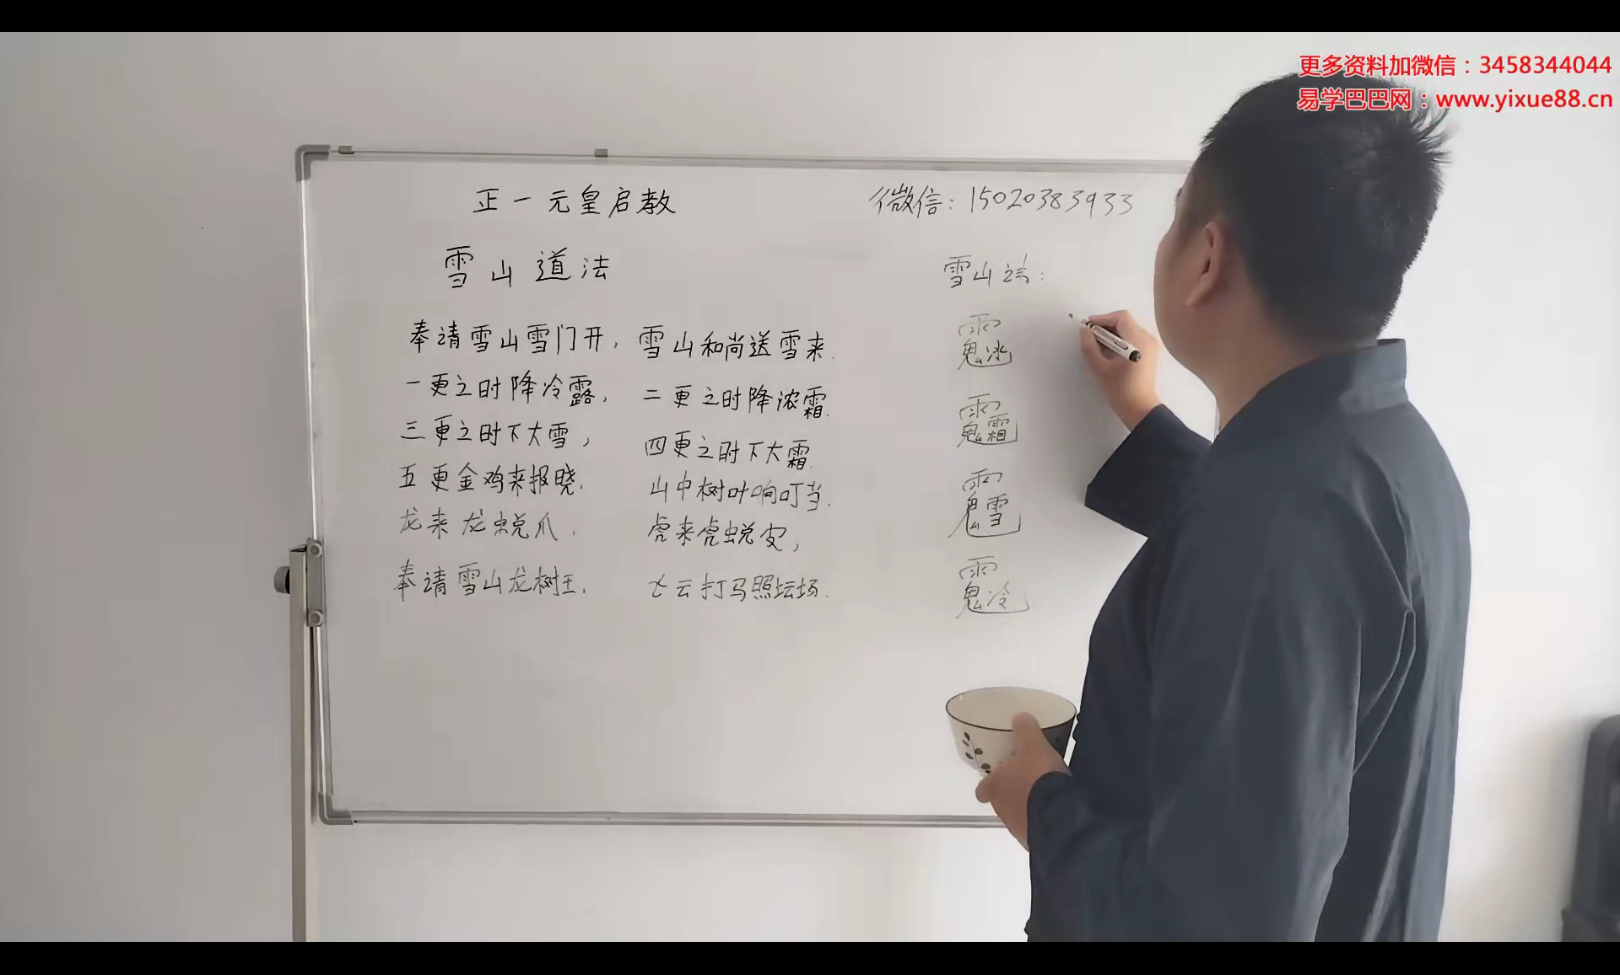 更多资料加微信：3458344044
易学巴巴网：www.yixue88.cn
正一元皇启教
微信：15020383933
雪山道法
奉请雪山雪门开，雪山和尚送雪来.
一更之时降冷露，二更之时降浓霜.
三更之时下大雪，四更之时下大霜.
五更金鸡来报晓.山中树叶响叮当.
龙来龙蜕爪.虎来虎蜕皮，
奉请雪山龙树王.飞云打马照坛场.
雪山讳：
雨鬼冰
雨鬼霜
雨鬼雪
雨鬼冷